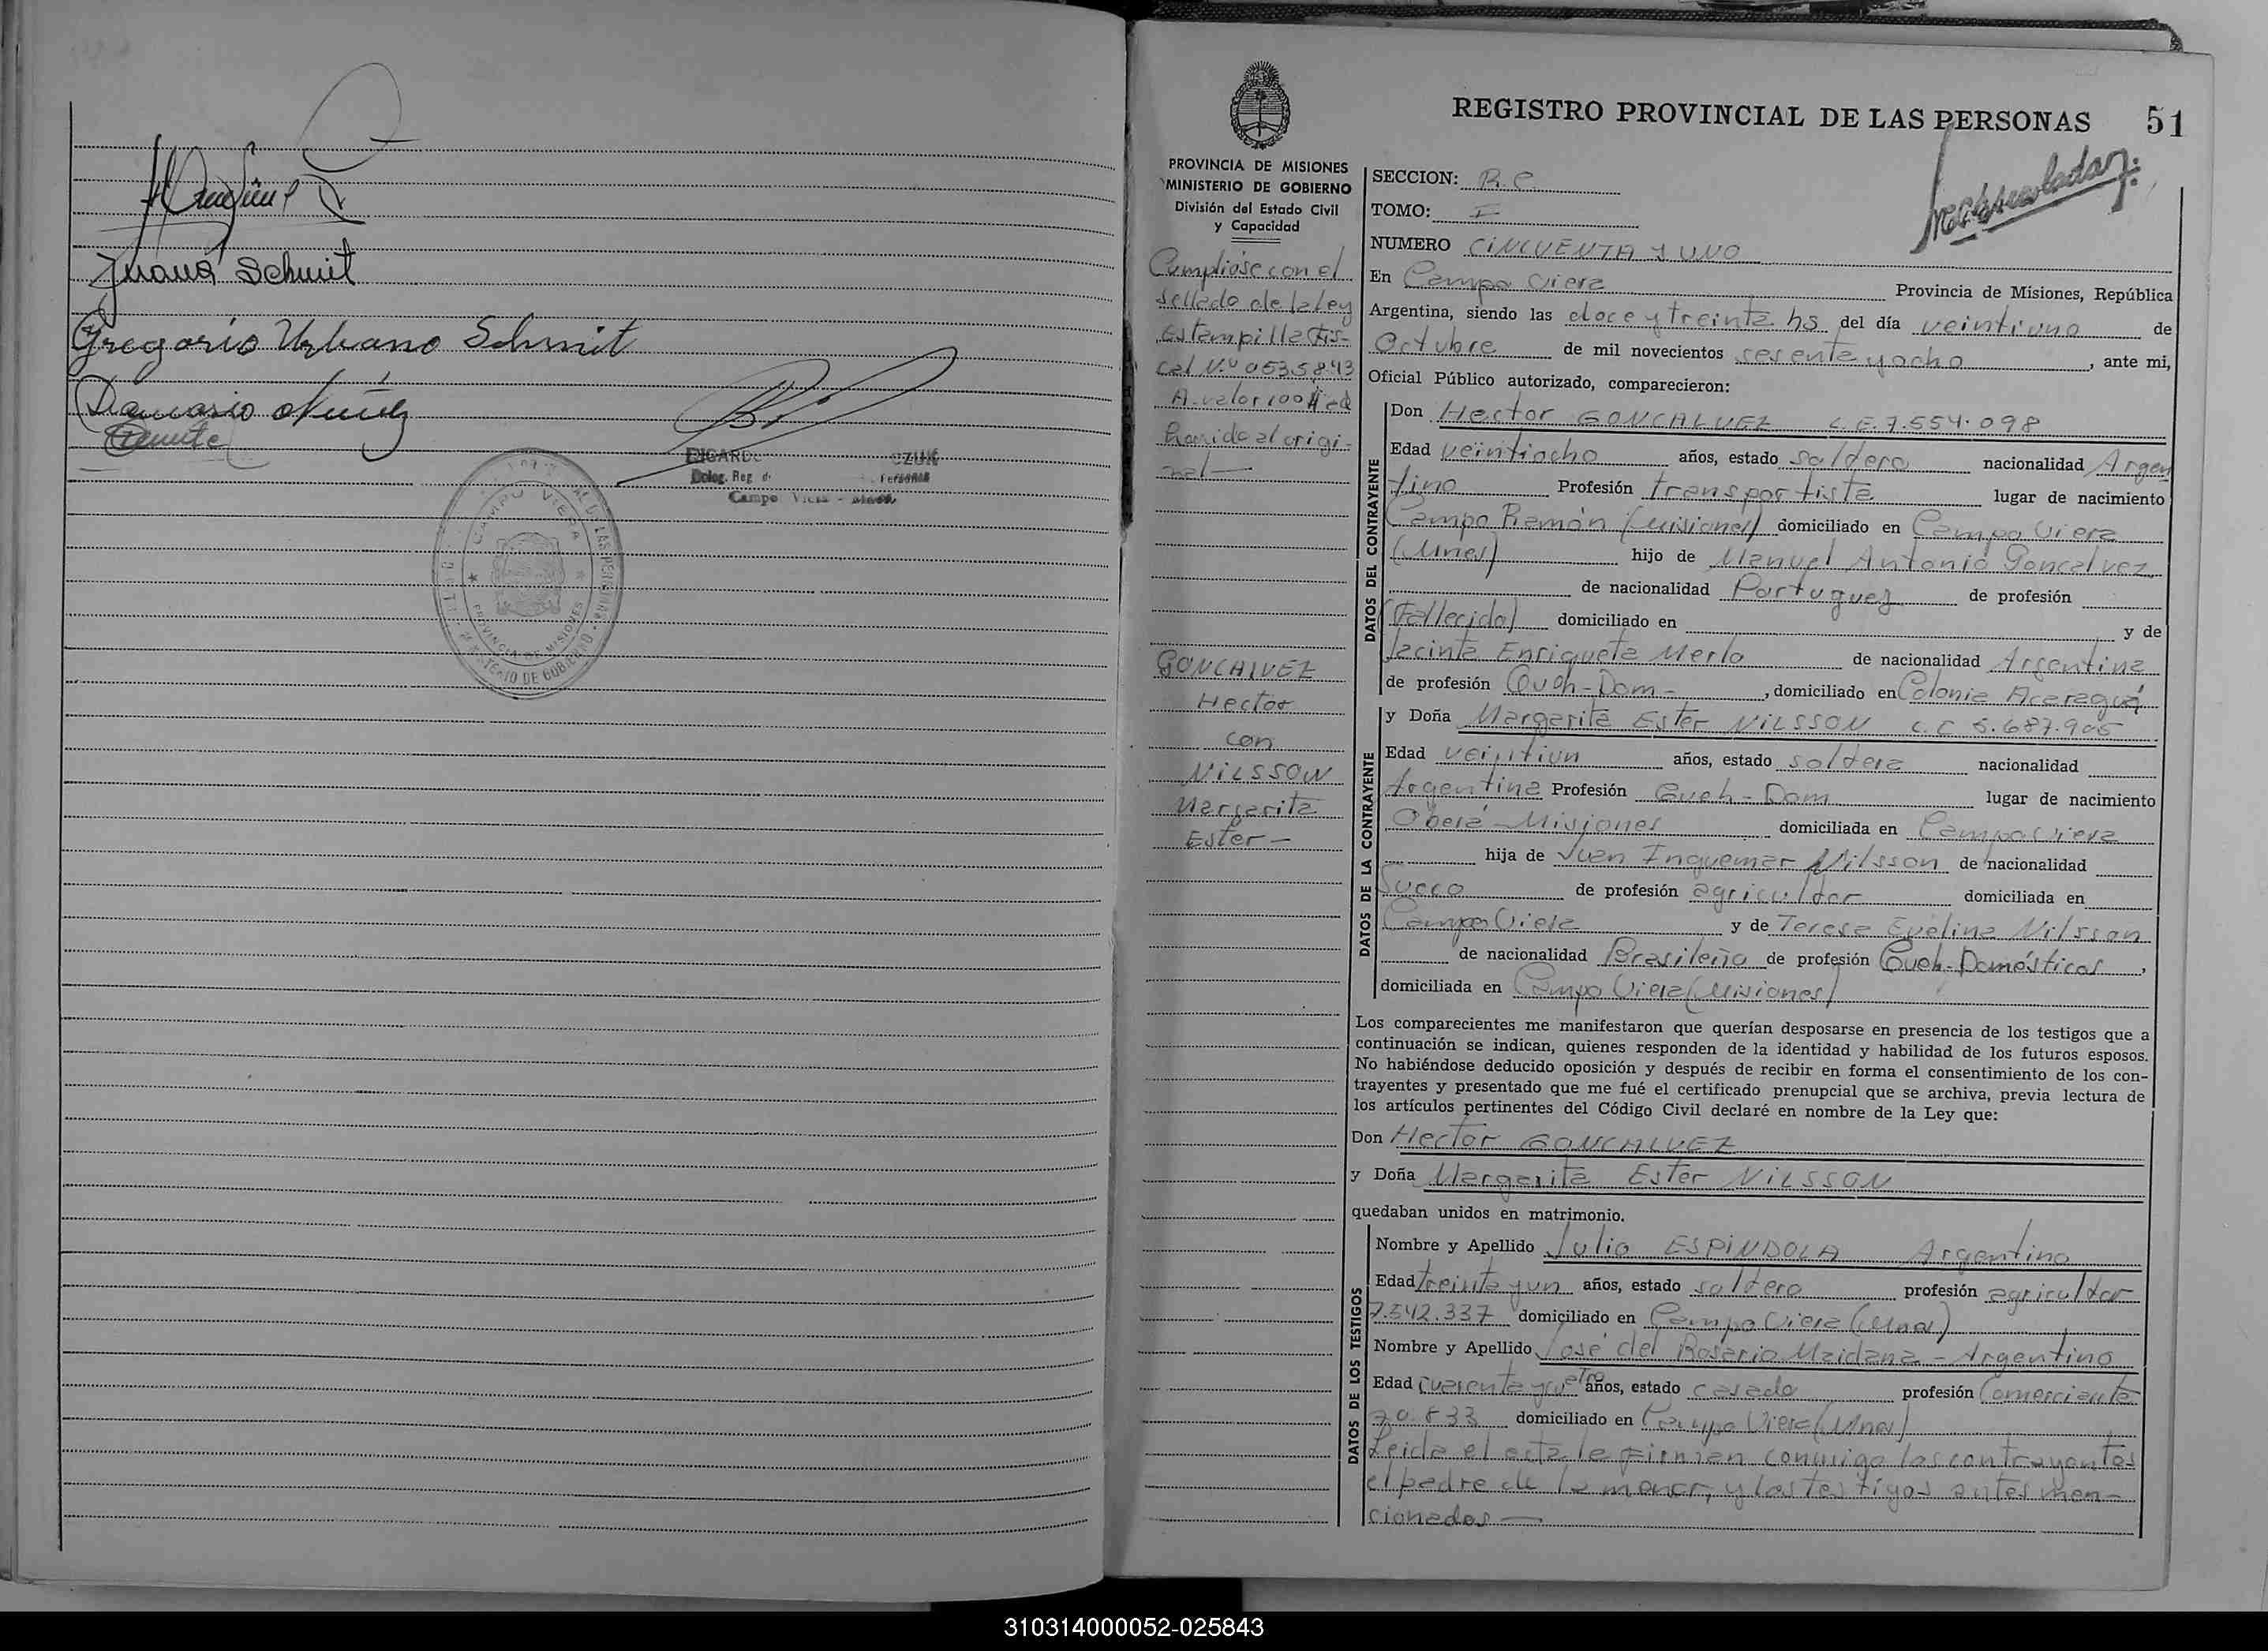 Juana Schmit
Gregorio Urbano Schmit
Damasio Nuñez
RICARD
Deleg. Reg. d
Campo Viera
CAMPO VIERA
PROVINCIA DE MISIONES
MINISTERIO DE GOBIERNO
REGISTRO PROVINCIAL DE LAS PERSONAS 51
PROVINCIA DE MISIONES
MINISTERIO DE GOBIERNO
División del Estado Civil
y Capacidad
Cumpliose con el
sellado de la ley
Estampilla Fis-
cal N.º 0535843
A. valor 100
al origi-
nal—
GONCHLVEZ
Hector
con
NILSSON
Margarita
Ester—
SECCION: R.C.
TOMO: I
NUMERO CINCUENTA Y UNO
En Campo Viera Provincia de Misiones, República
Argentina, siendo las doce y treinta hs del día veintiuno de
Octubre de mil novecientos sesenta y ocho, ante mi,
Oficial Público autorizado, comparecieron:
DATOS DEL CONTRAYENTE
Don Hector GONCHLVEZ C.E. 7.554.098
Edad veintiocho años, estado soltero nacionalidad Argen
tino Profesión transportista lugar de nacimiento
Campo Ramón (Misiones) domiciliado en Campo Viera
(Mnes) hijo de Manuel Antonio Goncalvez
de nacionalidad Portuguez de profesión
(Fallecido) domiciliado en y de
Jacinta Enriqueta Merlo de nacionalidad Argentina
de profesión Queh-Dom-, domiciliado en Colonia Acaraguá
DATOS DE LA CONTRAYENTE
y Doña Margarita Ester NILSSON C.C 5.687.905
Edad veintiun años, estado soltera nacionalidad
Argentina Profesión Queh-Dom lugar de nacimiento
Oberá-Misiones domiciliada en Campo Viera
hija de Juan Inguemar Nilsson de nacionalidad
Sueco de profesión agricultor domiciliada en
Campo Viera y de Teresa Evelina Nilsson
de nacionalidad Brasileña de profesión Queh-Domésticos,
domiciliada en Campo Viera (Misiones)
Los comparecientes me manifestaron que querían desposarse en presencia de los testigos que a
continuación se indican, quienes responden de la identidad y habilidad de los futuros esposos.
No habiéndose deducido oposición y después de recibir en forma el consentimiento de los con-
trayentes y presentado que me fué el certificado prenupcial que se archiva, previa lectura de
los artículos pertinentes del Código Civil declaré en nombre de la Ley que:
Don Hector GONCHLVEZ
y Doña Margarita Ester NILSSON
quedaban unidos en matrimonio.
DATOS DE LOS TESTIGOS
Nombre y Apellido Julio ESPINDOLA Argentino
Edad treinta y un años, estado soltero profesión agricultor
7.542.337 domiciliado en Campo Viera (Mnes)
Nombre y Apellido José del Rosario Maidana - Argentino
Edad cuarenta y cuatro años, estado casado profesión Comerciante
70.833 domiciliado en Campo Viera (Mnes)
Leida el acta le firman conmigo los contrayentes
el padre de la menor, y los testigos antes men-
cionados—
310314000052-025843